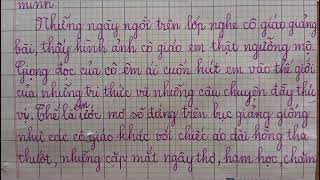 mình.
Những ngày ngồi trên lớp nghe cô giáo giảng
bài, thấy hình ảnh cô giáo em thật ngưỡng mộ.
Giọng đọc của cô êm ái cuốn hút em vào thế giới
của những tri thức và những câu chuyện đầy thú
vị. Thế là em ước mơ sẽ đứng trên bục giảng giống
như các cô giáo khác với chiếc áo dài hồng tha
thướt, những cặp mắt ngây thơ, ham học, chăm